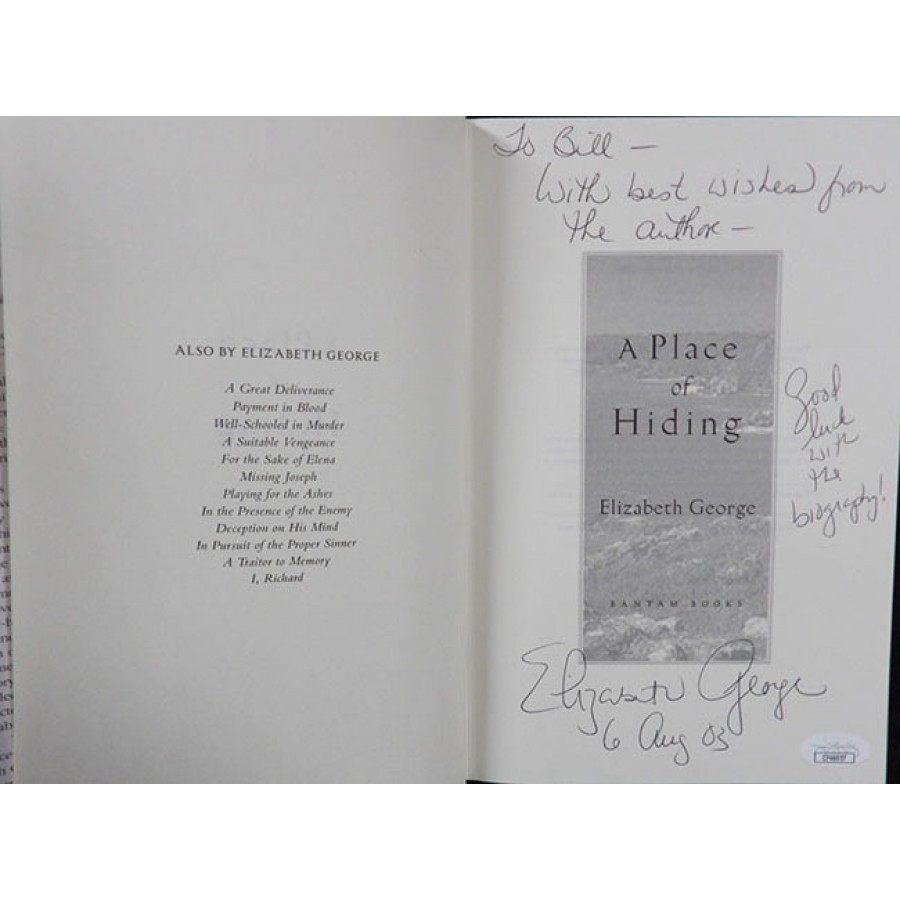 ALSO BY ELIZABETH GEORGE
A Great Deliverance
Payment in Blood
Well-Schooled in Murder
A Suitable Vengeance
For the Sake of Elena
Missing Joseph
Playing for the Ashes
In the Presence of the Enemy
Deception on His Mind
In Pursuit of the Proper Sinner
A Traitor to Memory
I, Richard
To Bill —
With best wishes from
the author —
A Place
of
Hiding
Elizabeth George
BANTAM BOOKS
Good
luck
with
the
biography!
Elizabeth George
6 Aug 03